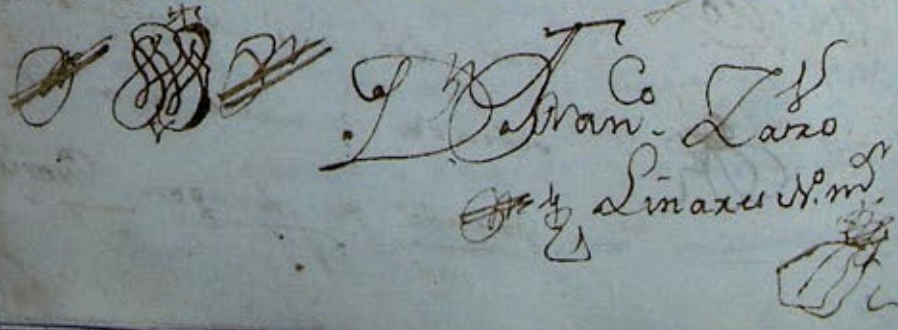 Dn Franco. Lazo
y Linares No. mr.